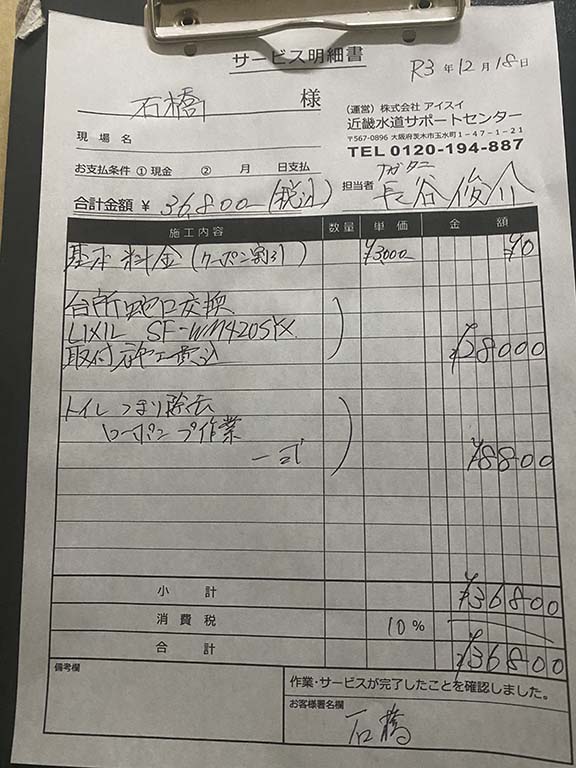 サービス明細書
R3年12月18日
石橋 様
(運営)株式会社 アイスイ
近畿水道サポートセンター
〒567-0896 大阪府茨木市玉水町1-47-1-21
TEL 0120-194-887
現場名
お支払条件 ① 現金 ② 月 日支払
ナガタニ
担当者 長谷俊介
合計金額 ¥ 36,800 (税込)
施工内容 数量 単価 金額
基本料金(クーポン割引) ¥3,000 ¥0
台所蛇口交換
LIXIL SF-WM420SYX
取付施工費込 ¥28000
トイレつまり除去
ローポンプ作業
一式 ¥8800
小計 ¥36800
消費税 10%
合計 ¥36800
備考欄
作業・サービスが完了したことを確認しました。
お客様署名欄
石橋